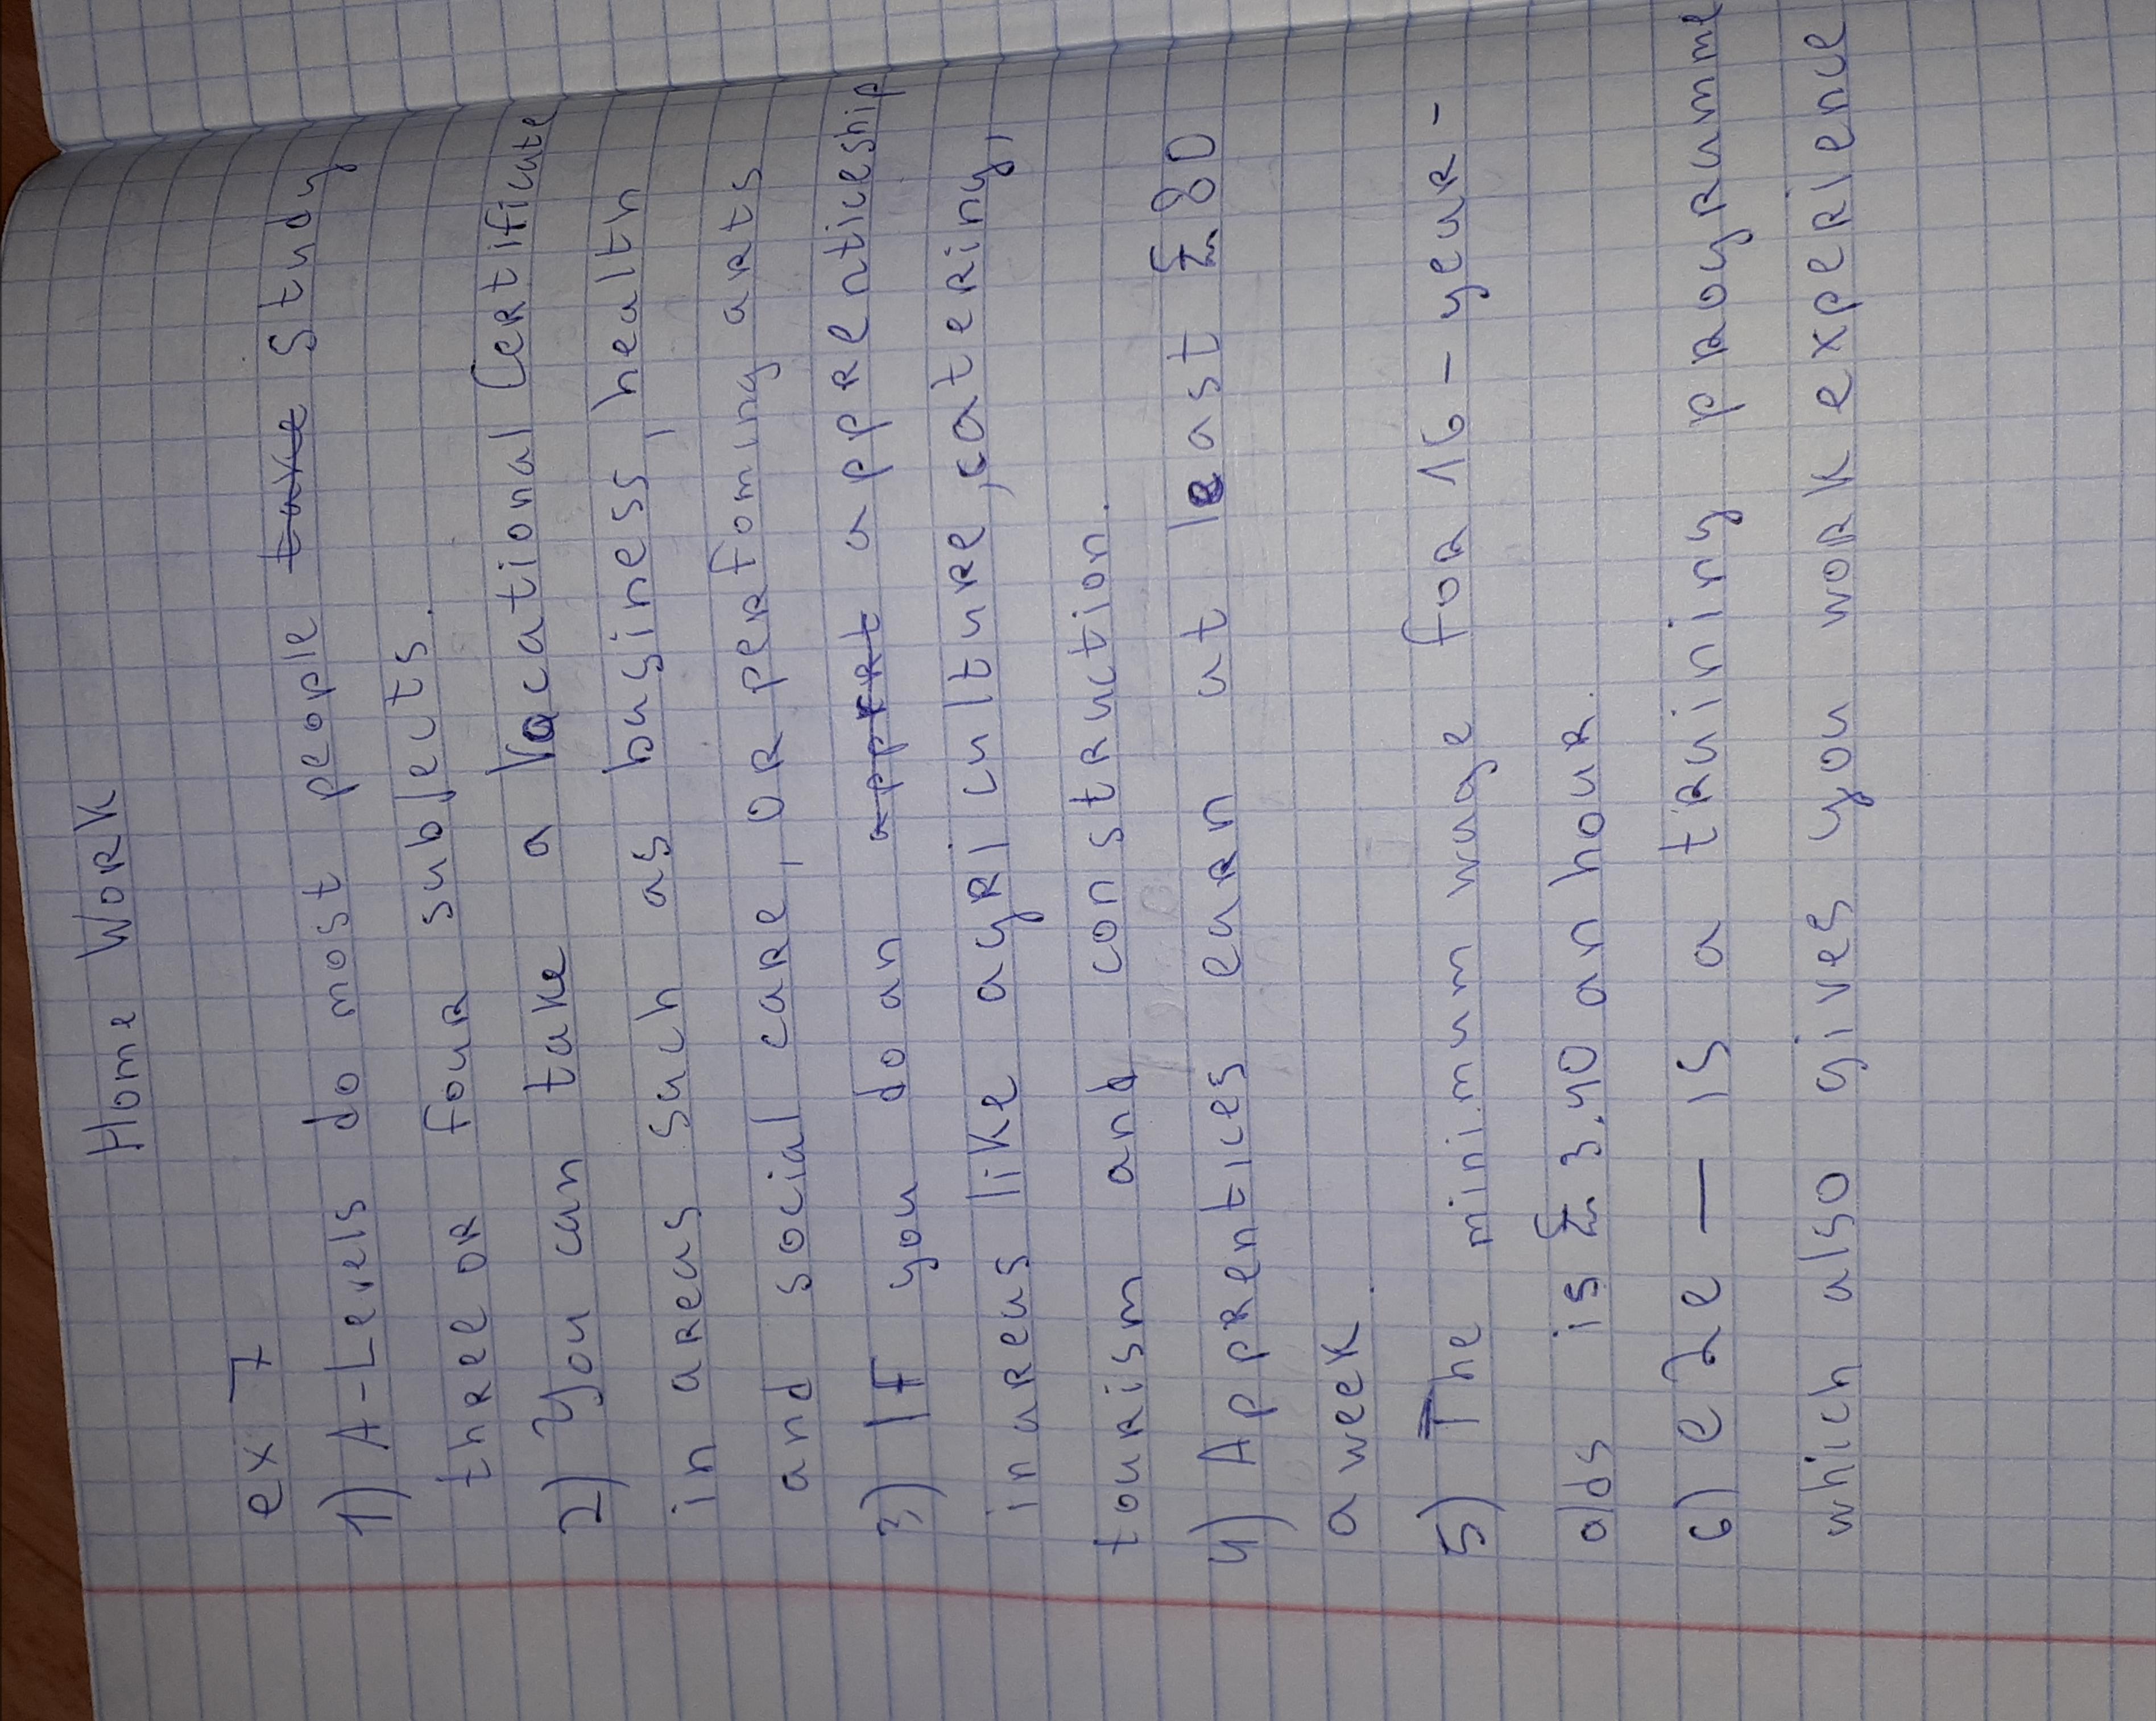 Home Work
ex 7
1) A-Levels do most people take study
three or four subjects.
2) You can take a Vocational Certificate
in areas such as business, health
and social care, or perfoming arts
3) If you do an appert a pprenticeship
in areas like agriculture, catering,
tourism and construction.
4) Apprentices earn at least £80
a week.
5) The minimum wage for 16-year-
olds is £3.40 an hour.
6) e2e — is a training programme
which also gives you work experience